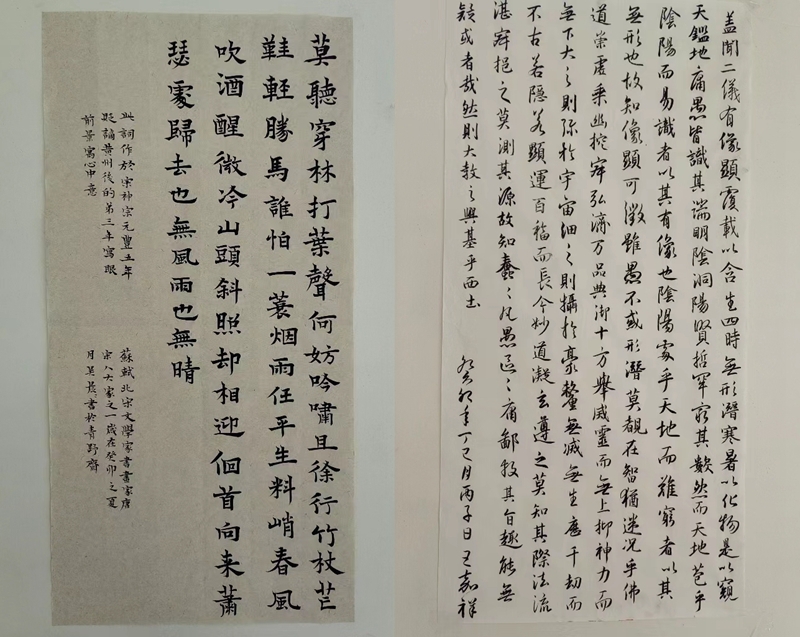 盖聞二儀有像顯覆載以含生四時無形潛寒暑以化物是以窺
天鑑地庸愚皆識其端明陰洞陽賢哲罕窮其數然而天地苞乎
陰陽而易識者以其有像也陰陽處乎天地而難窮者以其
無形也故知像顯可徵雖愚不惑形潛莫覩在智猶迷况乎佛
道崇虛乘幽控寂弘濟万品典御十方舉威靈而無上抑神力而
無下大之則弥於宇宙細之則攝於豪釐無滅無生歷千劫而
不古若隱若顯運百福而長今妙道凝玄遵之莫知其際法流
湛寂挹之莫測其源故知蠢々凡愚區々庸鄙投其旨趣能無
疑或者哉然則大教之興基乎西土
癸卯年丁巳月丙子日王嘉祥
莫聽穿林打葉聲何妨吟嘯且徐行竹杖芒
鞋輕勝馬誰怕一蓑烟雨任平生料峭春風
吹酒醒微冷山頭斜照却相迎回首向来蕭
瑟處歸去也無風雨也無晴
此詞作於宋神宗元豐五年
貶謫黄州後的第三年寫眼
前景寓心中意
蘇軾北宋文學家書畫家唐
宋八大家之一歲在癸卯之夏
月書於青野齋